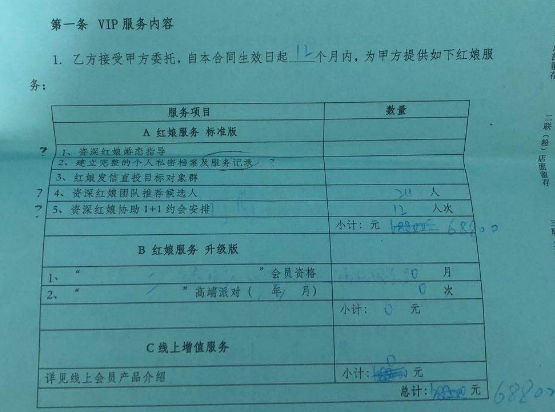 第一条 VIP 服务内容
1. 乙方接受甲方委托，自本合同生效日起 12 个月内，为甲方提供如下红娘服
务：
服务项目 数量
A 红娘服务 标准版
? 1、资深红娘婚恋指导
2、建立完整的个人私密档案及服务记录 ?
3、红娘发信直投目标对象群
? 4、资深红娘团队推荐候选人 人
? 5、资深红娘协助 1+1 约会安排 12 人次
小计：元 68800
B 红娘服务 升级版
1、“ ”会员资格 0 月
2、“ ”高端派对（ 年/ 月） 0 次
小计： 0 元
C 线上增值服务
详见线上会员产品介绍 小计： 0 元
总计： 元 68800
二联（粉）店面留存